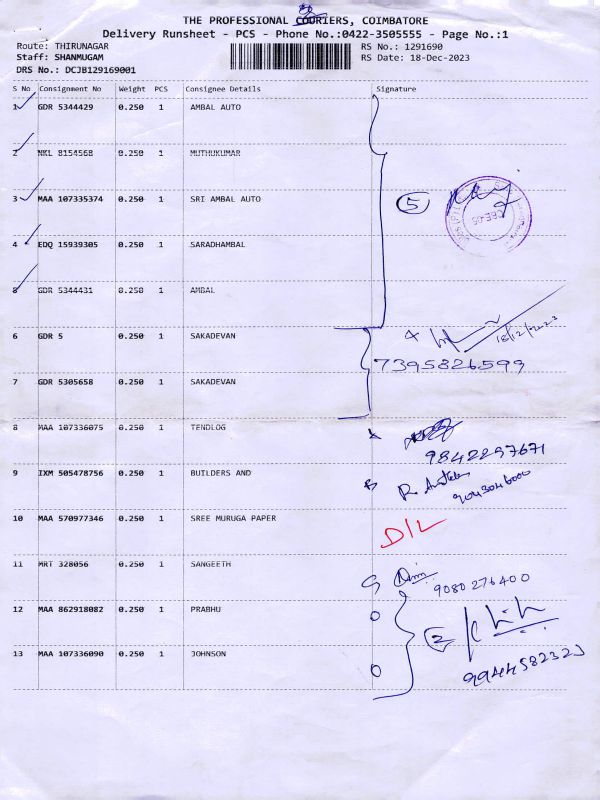 THE PROFESSIONAL COURIERS, COIMBATORE
Delivery Runsheet - PCS - Phone No.:0422-3505555 - Page No.:1
Route: THIRUNAGAR RS No.: 1291690
Staff: SHANMUGAM RS Date: 18-Dec-2023
DRS No.: DCJB129169001
S No Consignment No Weight PCS Consignee Details Signature
1 GDR 5344429 0.250 1 AMBAL AUTO
2 NKL 8154568 0.250 1 MUTHUKUMAR
3 MAA 107335374 0.250 1 SRI AMBAL AUTO 5
4 EDQ 15939305 0.250 1 SARADHAMBAL
5 GDR 5344431 0.250 1 AMBAL
6 GDR 5 0.250 1 SAKADEVAN 18/12/2023
7395826599
7 GDR 5305658 0.250 1 SAKADEVAN
8 MAA 107336075 0.250 1 TENDLOG
9842297671
9 IXM 505478756 0.250 1 BUILDERS AND
9043046000
10 MAA 570977346 0.250 1 SREE MURUGA PAPER D/L
11 MRT 328056 0.250 1 SANGEETH
9080276400
12 MAA 862918082 0.250 1 PRABHU 2
13 MAA 107336090 0.250 1 JOHNSON
9944582323